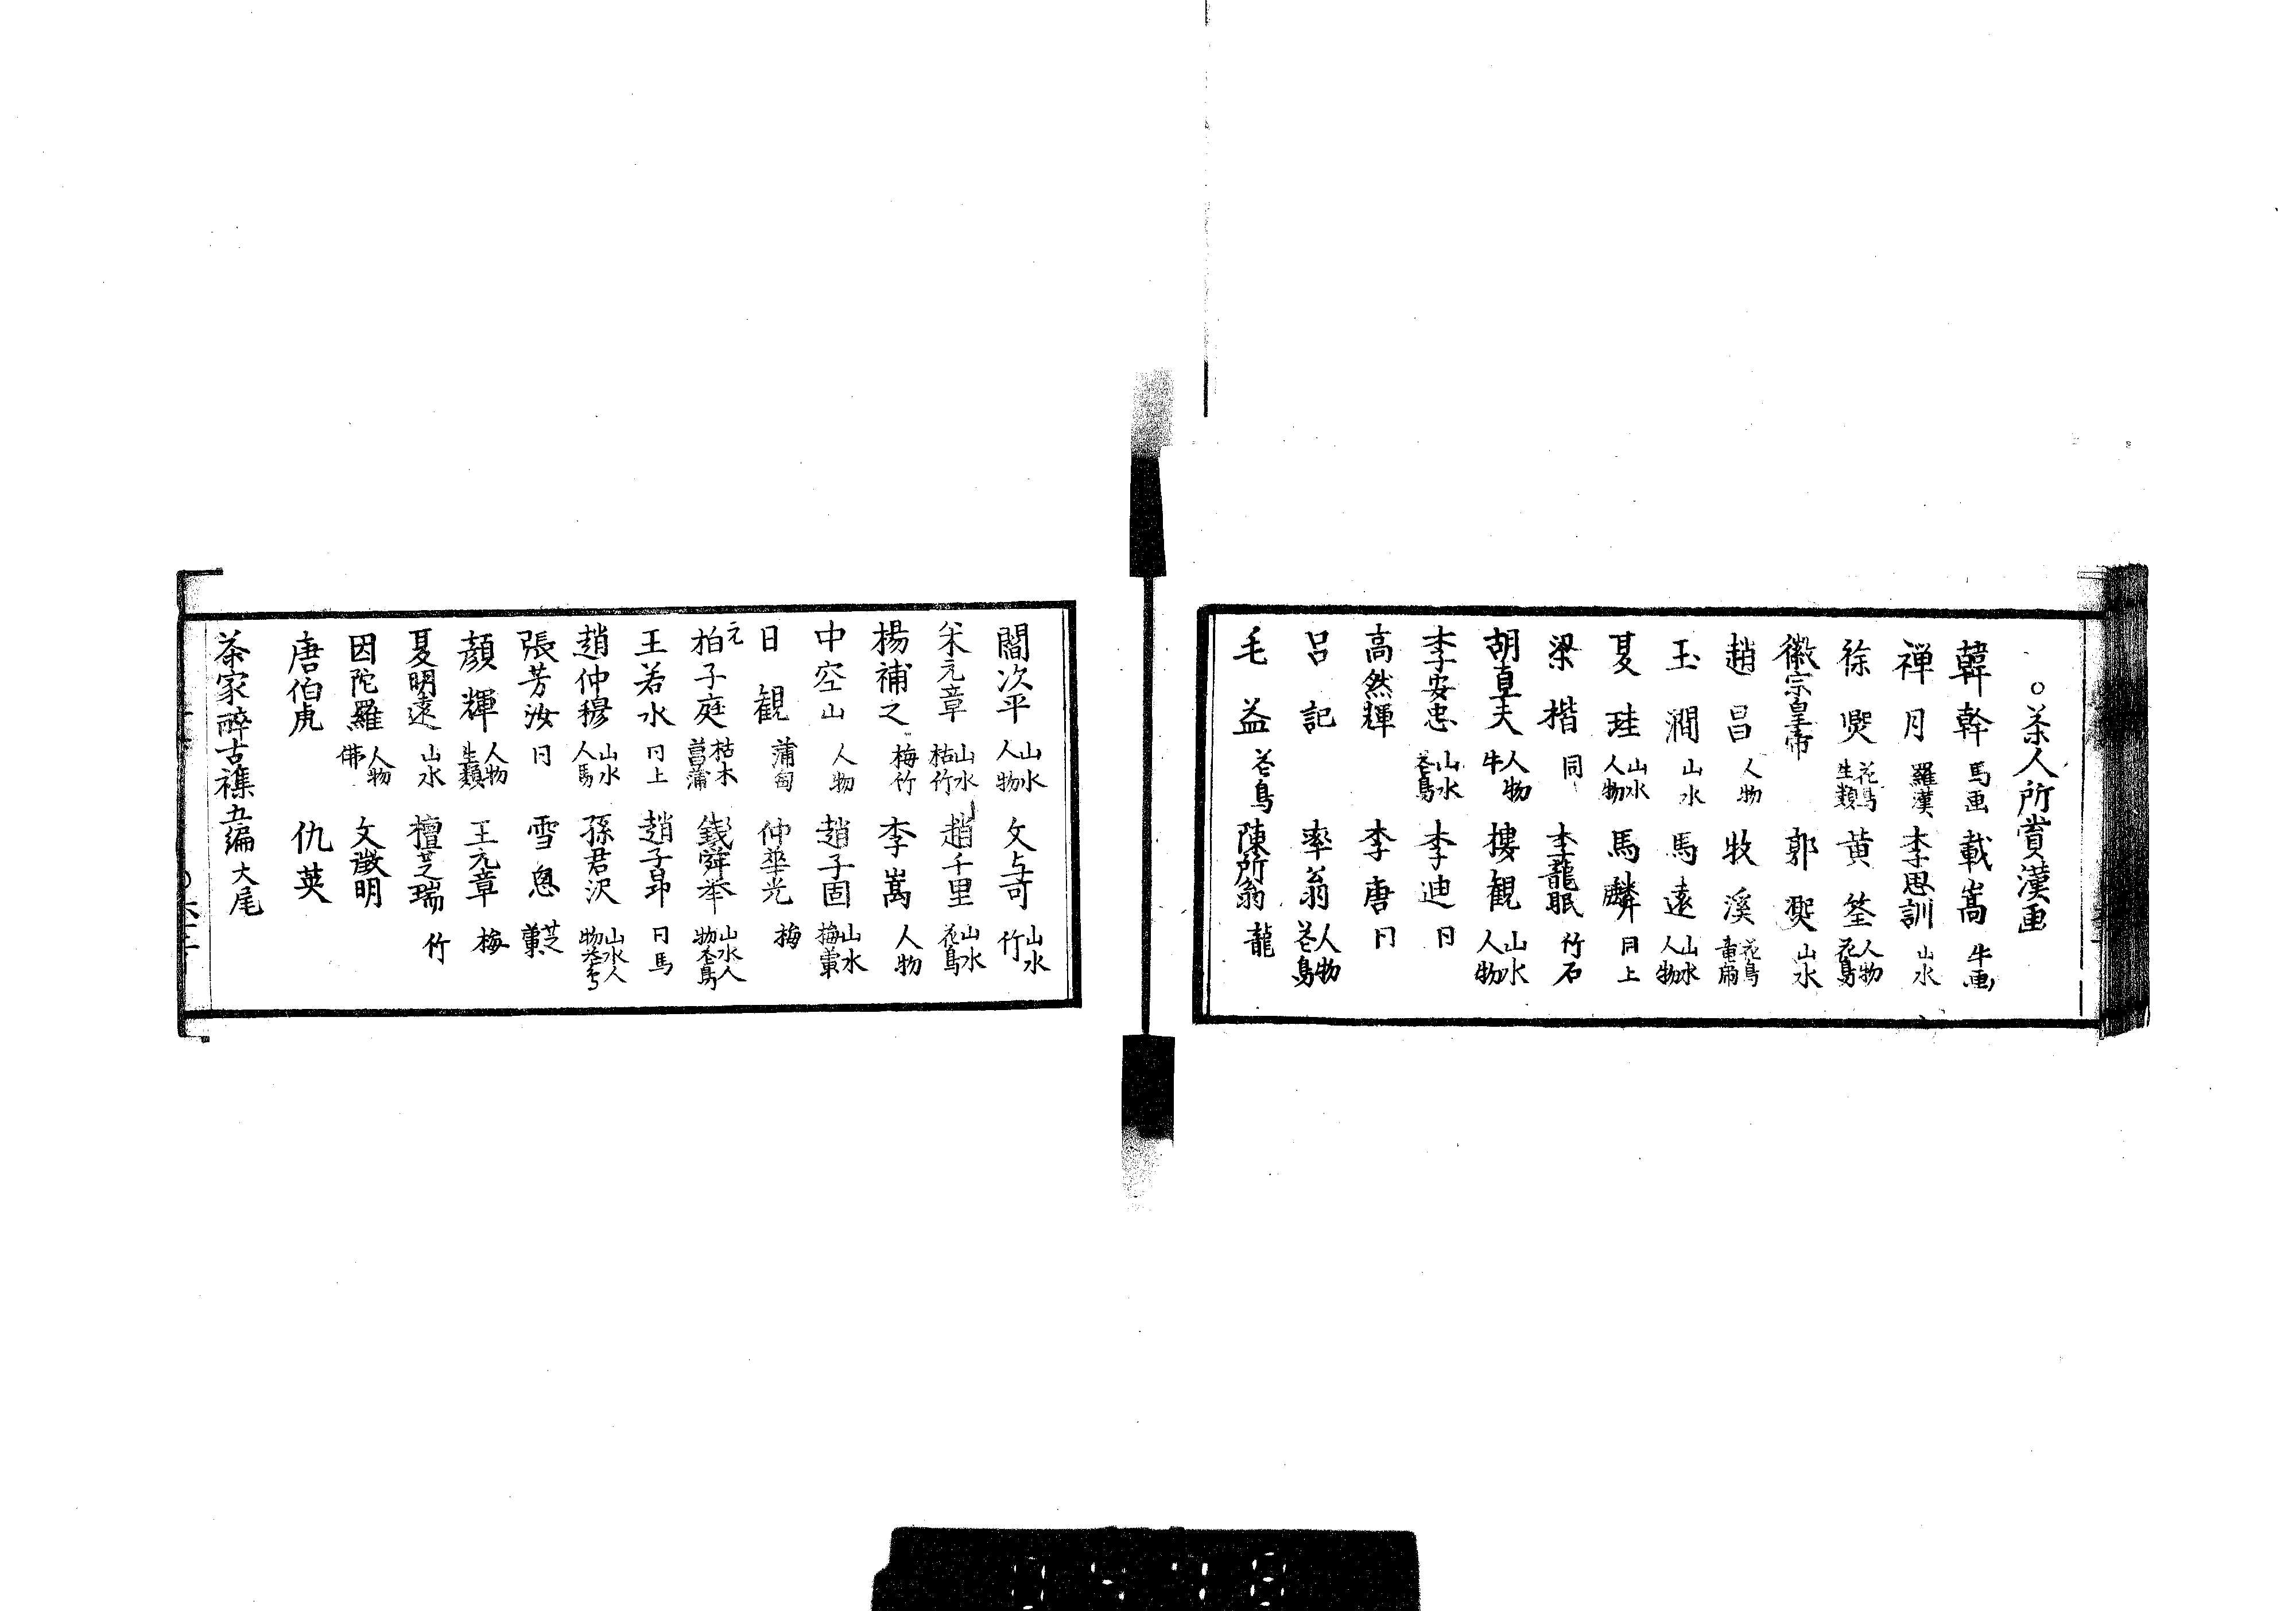 ○茶人所賞漢画
韓幹 馬画 載嵩 牛画
禅月 羅漢 李思訓 山水
徐熙 花鳥生類 黄筌 人物花鳥
徽宗皇帝 郭熙 山水
趙昌 人物 牧溪 花鳥
玉澗 山水 馬遠 山水人物
夏珪 山水人物 馬麟 同上
梁楷 同 李龍眠 竹石
胡直夫 人物牛 樓観 山水人物
李安忠 山水花鳥 李迪 同
高然輝 李唐 同
呂記 率翁 人物花鳥
毛益 花鳥 陳所翁 龍
閻次平 山水人物 文与可 山水竹
米元章 山水枯竹 趙千里 山水花鳥
楊補之 梅竹 李嵩 人物
中空山 人物 趙子固 山水梅蘭
日観 蒲萄 仲華光 梅
元 柏子庭 枯木菖蒲 銭舜挙 山水人物花鳥
王若水 同上 趙子昂 同馬
趙仲穆 山水人馬 孫君沢 山水人物花鳥
張芳汝 同 雪窓 芝蘭
顔輝 人物生類 王元章 梅
夏明遠 山水 檀芝瑞 竹
因陀羅 人物佛 文徴明
唐伯虎 仇英
茶家酔古襍五編大尾